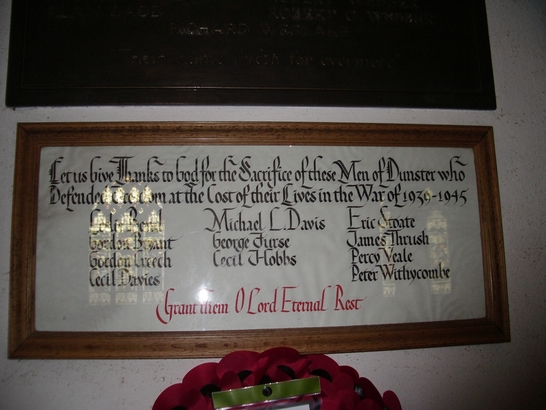 Their name liveth for evermore
Let us Give Thanks to God for the Sacrifice of these Men of Dunster who
Defended Freedom at the Cost of their Lives in the War of 1939-1945
Gordon Bryant
Gordon Creech
Cecil Davies
Michael L. Davis
George Furse
Cecil Hobbs
Eric Stoate
James Thrush
Percy Veale
Peter Withycombe
Grant them O Lord Eternal Rest